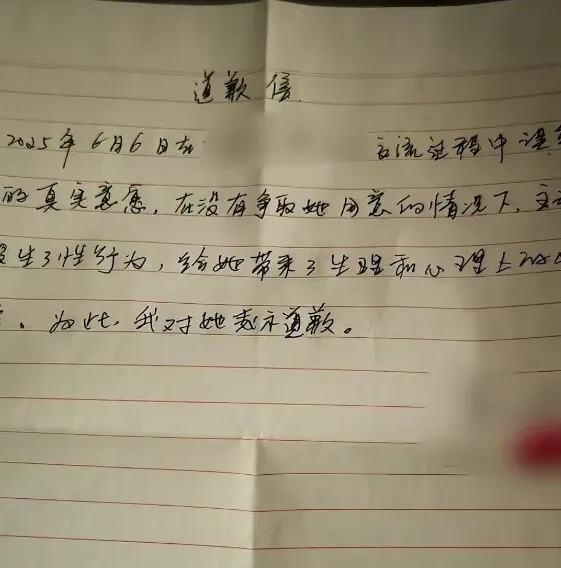 道歉信
2025年6月6日在 交流过程中误
的真实意愿，在没有争取她同意的情况下，主
发生了性行为，给她带来了生理和心理上的
。为此，我对她表示道歉。